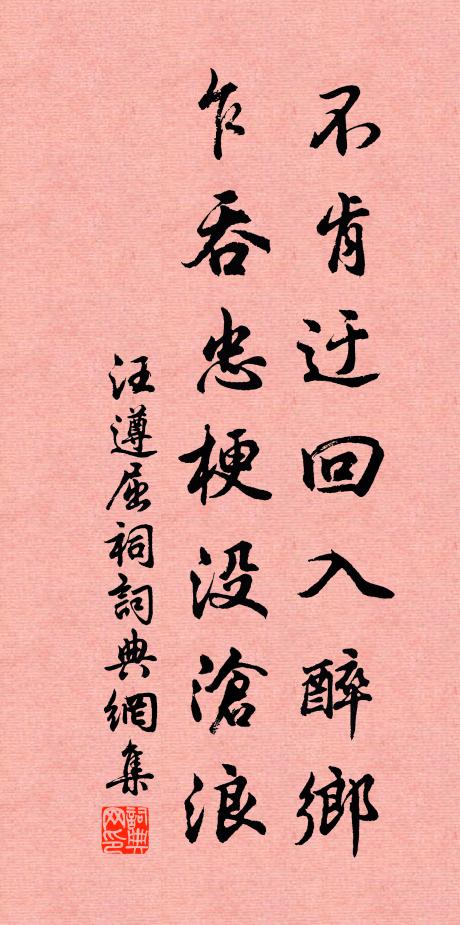 不肯迂回入醉鄉
乍吞忠梗没滄浪
汪遵屈祠詞典網集
詞典网印